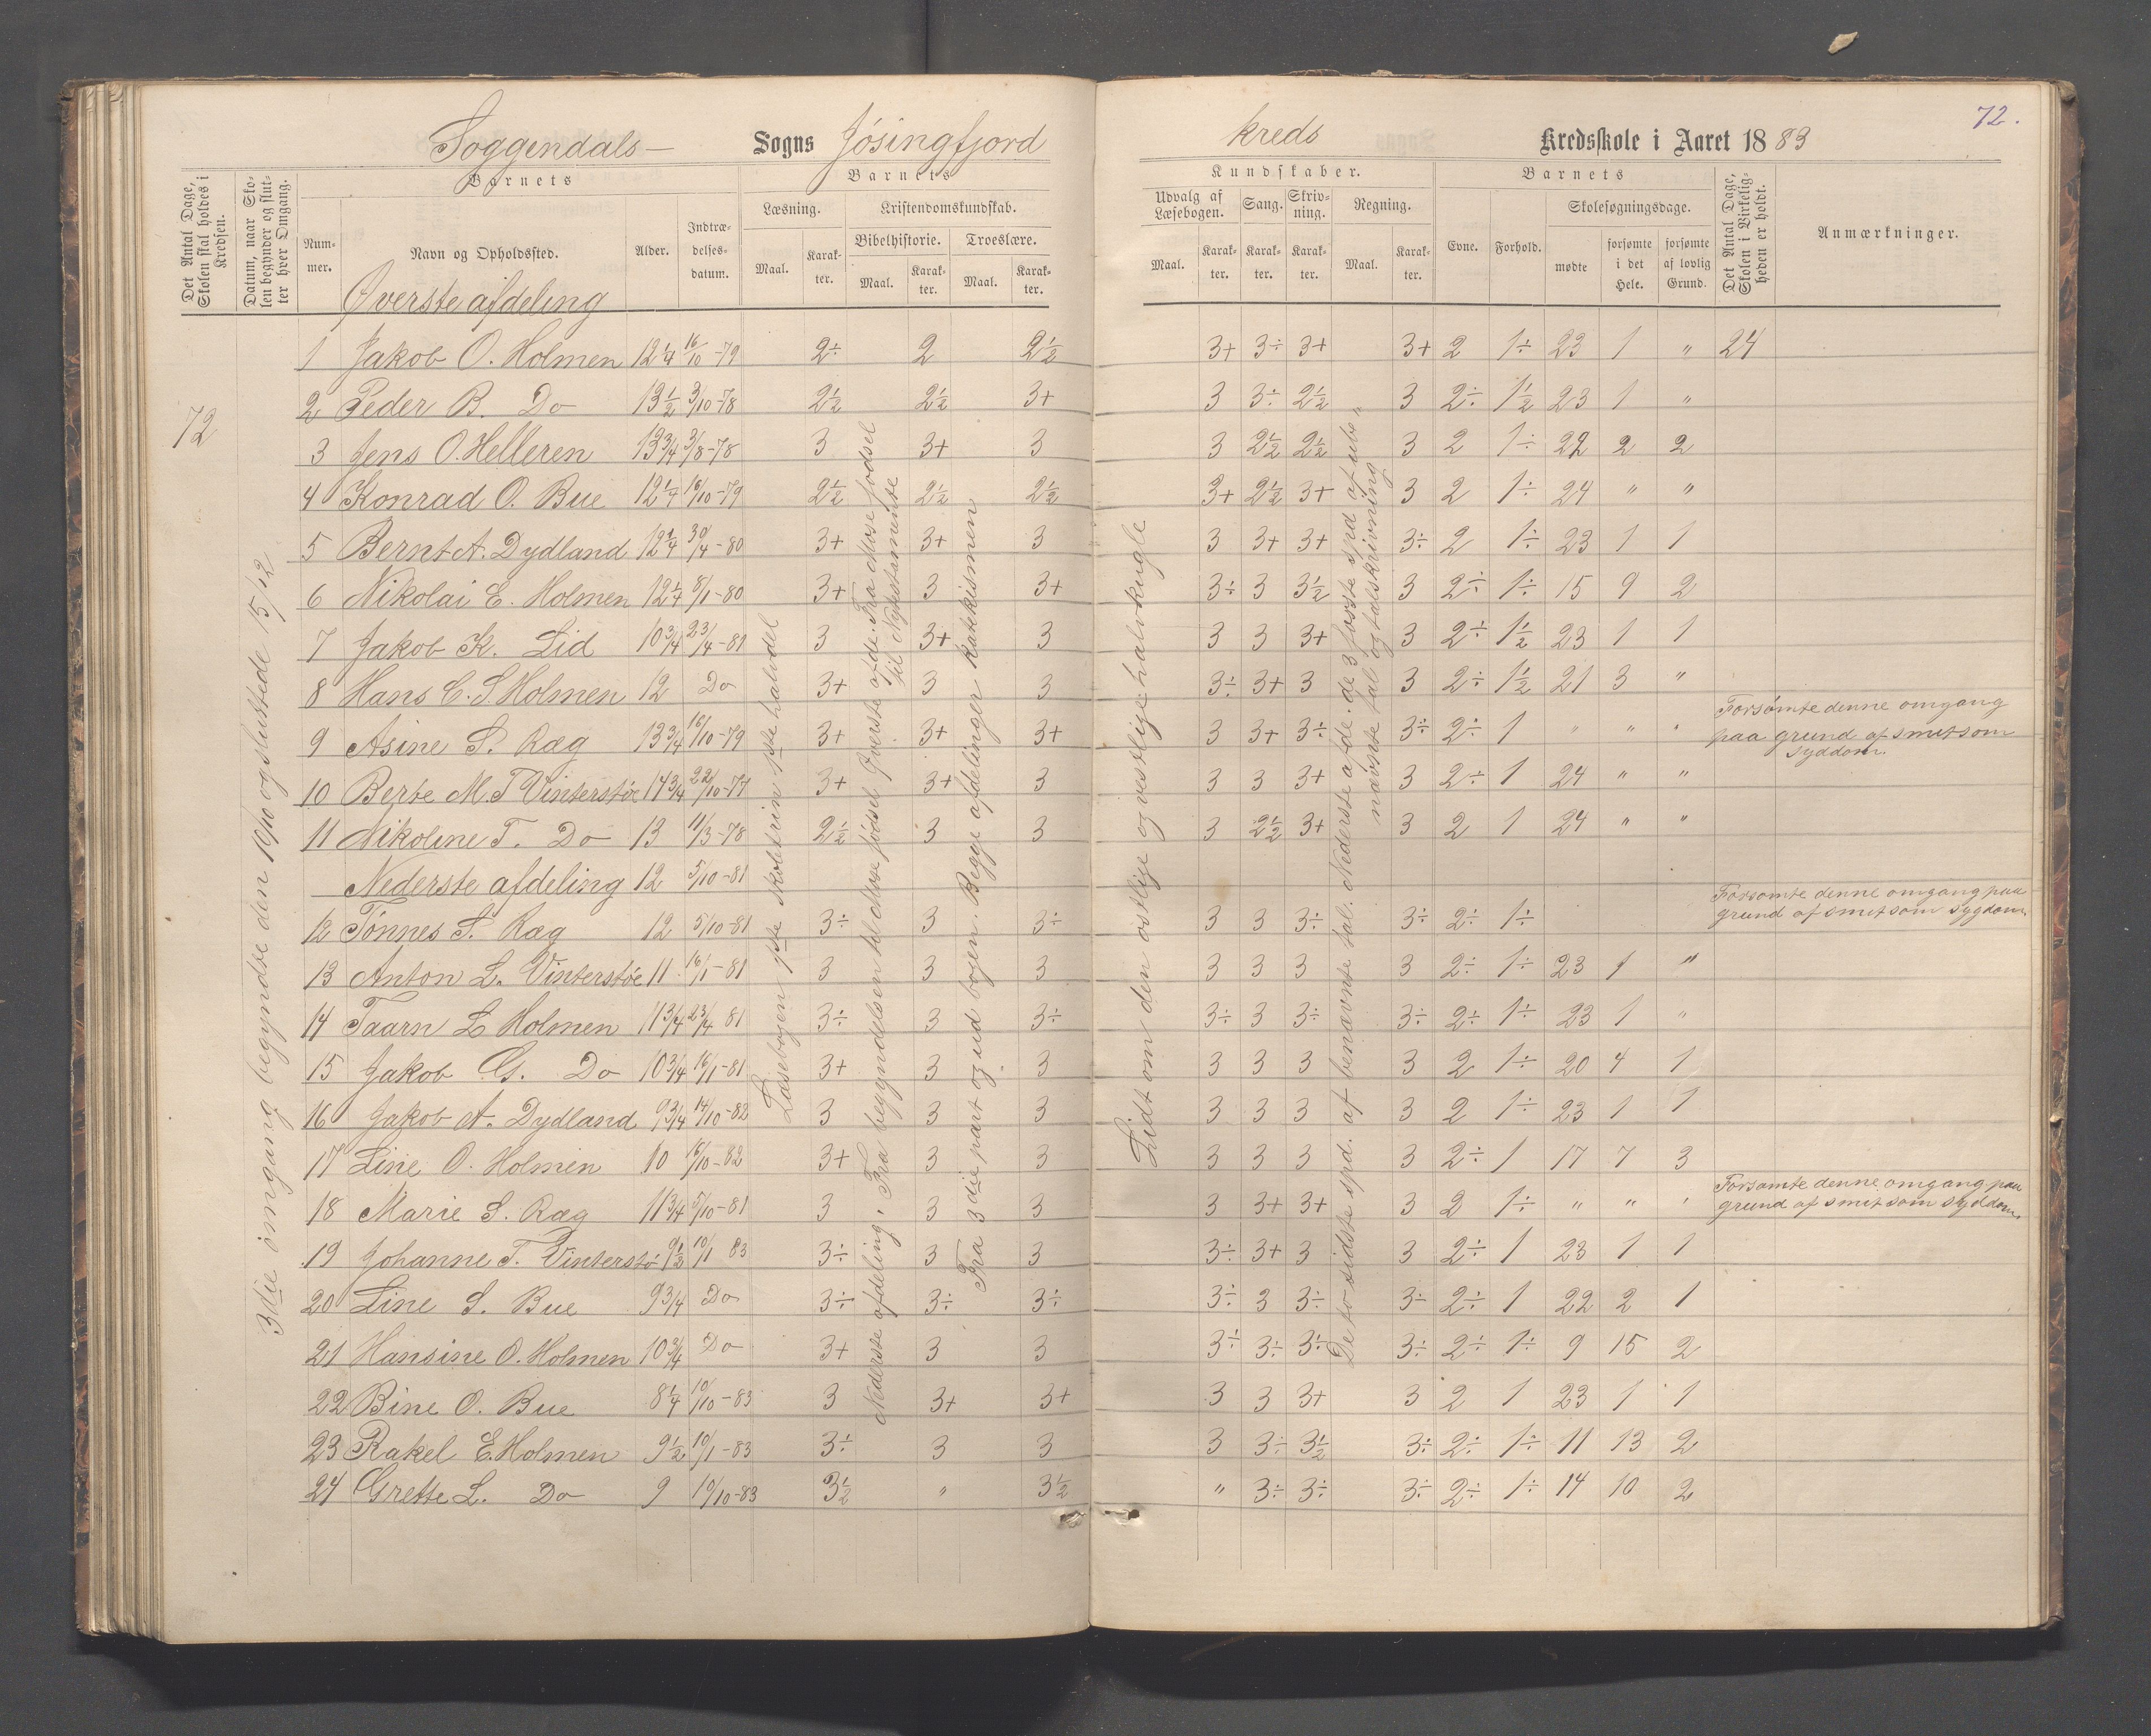 72.
Soggendals- Sogns Jøsingfjord kreds Kredsskole i Aaret 1883
Det Antal Dage, Skolen skal holdes i Kredsen.
Datum, naar Skolen begynder og slutter hver Omgang.
Barnets
Nummer.
Navn og Opholdssted.
Alder.
Indtrædelsesdatum.
Barnets
Læsning.
Maal.
Karakter.
Kristendomskundskab.
Bibelhistorie.
Maal.
Karakter.
Troeslære.
Maal.
Karakter.
Kundskaber.
Udvalg af Læsebogen.
Maal.
Karakter.
Sang.
Karakter.
Skrivning.
Karakter.
Regning.
Maal.
Karakter.
Barnets
Evne.
Forhold.
Skolesøgningsdage.
mødte
forsømte i det Hele.
forsømte af lovlig Grund.
Det Antal Dage, Skolen i Virkeligheden er holdt.
Anmærkninger.
Øverste afdeling
1 Jakob O. Holmen 12 1/4 16/10-79 2÷ 2 2 1/2 3+ 3÷ 3+ 3+ 2 1÷ 23 1 " 24
72
2 Peder B. Do 13 1/2 3/10-78 2 1/2 2 1/2 3+ 3 3÷ 2 1/2 3 2÷ 1 1/2 23 1 "
3 Jens O. Helleren 13 3/4 3/8-78 3 3+ 3 3 2 1/2 2 1/2 3 2 1÷ 22 2 2
4 Konrad O. Bue 12 1/4 16/10-79 2 1/2 2 1/2 2 1/2 3+ 2 1/2 3+ 3 2 1÷ 24 " "
5 Bernt A. Dydland 12 1/4 30/4-80 3+ 3+ 3 3 3+ 3+ 3÷ 2 1÷ 23 1 1
6 Nikolai E. Holmen 12 1/4 8/1-80 3+ 3 3+ 3÷ 3 3 1/2 3 2÷ 1÷ 15 9 2
7 Jakob K. Lid 10 3/4 23/4-81 3 3+ 3 3 3 3+ 3 2÷ 1 1/2 23 1 1
8 Hans C. S. Holmen 12 Do 3+ 3 3 3÷ 3+ 3 3 2÷ 1 1/2 21 3 "
9 Asine S. Ræg 13 3/4 16/10-79 3+ 3+ 3+ 3 3+ 3÷ 3÷ 2÷ 1 " " "
Forsømte denne omgang
paa grund af smitsom
syddom.
10 Berte M. T Vinterstøe 14 3/4 22/10-77 3+ 3+ 3 3 3 3+ 3 2÷ 1 24 " "
11 Nikoline T. Do 13 11/3-78 2 1/2 3 3 3 2 1/2 3+ 3 2 1 24 " "
Nederste afdeling 12 5/10-81
12 Tønnes S. Ræg 12 5/10-81 3÷ 3 3÷ 3 3 3÷ 3÷ 2÷ 1÷
Forsømte denne omgang paa
grund af smitsom sygdom.
13 Anton L. Vinterstøe 11 16/1-81 3 3 3 3 3 3 3 2÷ 1÷ 23 1 "
14 Taarn L Holmen 11 3/4 23/4 81 3÷ 3 3÷ 3÷ 3 3÷ 3÷ 2÷ 1÷ 23 1 "
15 Jakob G. Do 10 3/4 16/1-81 3+ 3 3 3 3 3 3 2 1÷ 20 4 1
16 Jakob A. Dydland 9 3/4 14/10-82 3 3 3 3 3 3 3 2 1÷ 23 1 1
17 Line O. Holmen 10 16/10-82 3+ 3 3 3 3 3 3 2÷ 1 17 7 3
18 Marie S. Ræg 11 3/4 5/10-81 3 3 3 3 3+ 3+ 3 2 1÷ " " "
Forsømte denne omgang paa
grund af smitsom syddom.
19 Johanne T. Vinterstø 9 1/2 10/1 83 3÷ 3 3 3÷ 3+ 3 3 2÷ 1 23 1 1
20 Line S. Bue 9 3/4 Do 3÷ 3÷ 3÷ 3÷ 3 3÷ 3÷ 2÷ 1 22 2 1
21 Hansine O. Holmen 10 3/4 Do 3+ 3 3 3÷ 3÷ 3÷ 3÷ 2÷ 1÷ 9 15 2
22 Bine O. Bue 8 1/4 10/10-83 3 3+ 3+ 3 3 3+ 3 2 1 23 1 1
23 Rakel E. Holmen 9 1/2 10/1-83 3÷ 3 3 3 3÷ 3 1/2 3÷ 2÷ 1÷ 11 13 2
24 Grette L. Do 9 10/10-83 3 1/2 " 3 1/2 " 3÷ 3÷ 3÷ 2÷ 1÷ 14 10 2
3die omgang begyndte den 19/10 og sluttede 15/12
Læsebogen 1ste Skoletrin 1ste halvdel
Nederste afdeling, Fra begyndelsen til Mose fødsel Øverste afde. Fra Mose fødsel
til Nytestamente
Fra 3die part og ud bogen. Begge afdelinger katekismen
Lidt om den østlige og vestlige halvkugle
De to sidste spd. af benævnte tal. Nederste afde. de 3 første spd af ube "
nævnte tal og talskrivning